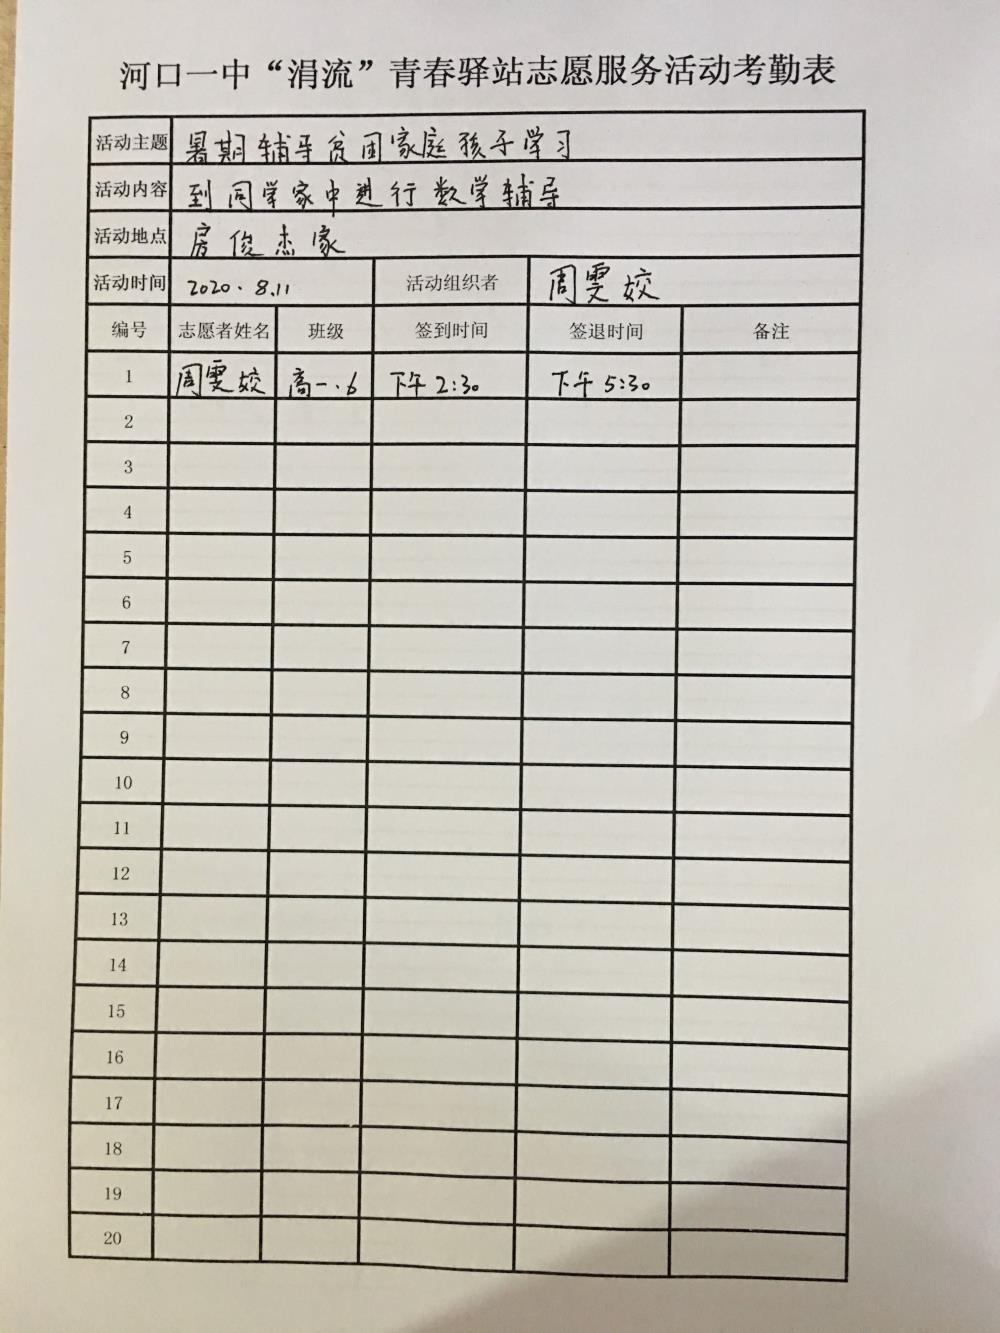 河口一中“涓流”青春驿站志愿服务活动考勤表
活动主题 暑期辅导贫困家庭孩子学习
活动内容 到同学家中进行数学辅导
活动地点 房俊杰家
活动时间 2020.8.11 活动组织者 周雯姣
编号 志愿者姓名 班级 签到时间 签退时间 备注
1 周雯姣 高一.6 下午2:30 下午5:30
2
3
4
5
6
7
8
9
10
11
12
13
14
15
16
17
18
19
20